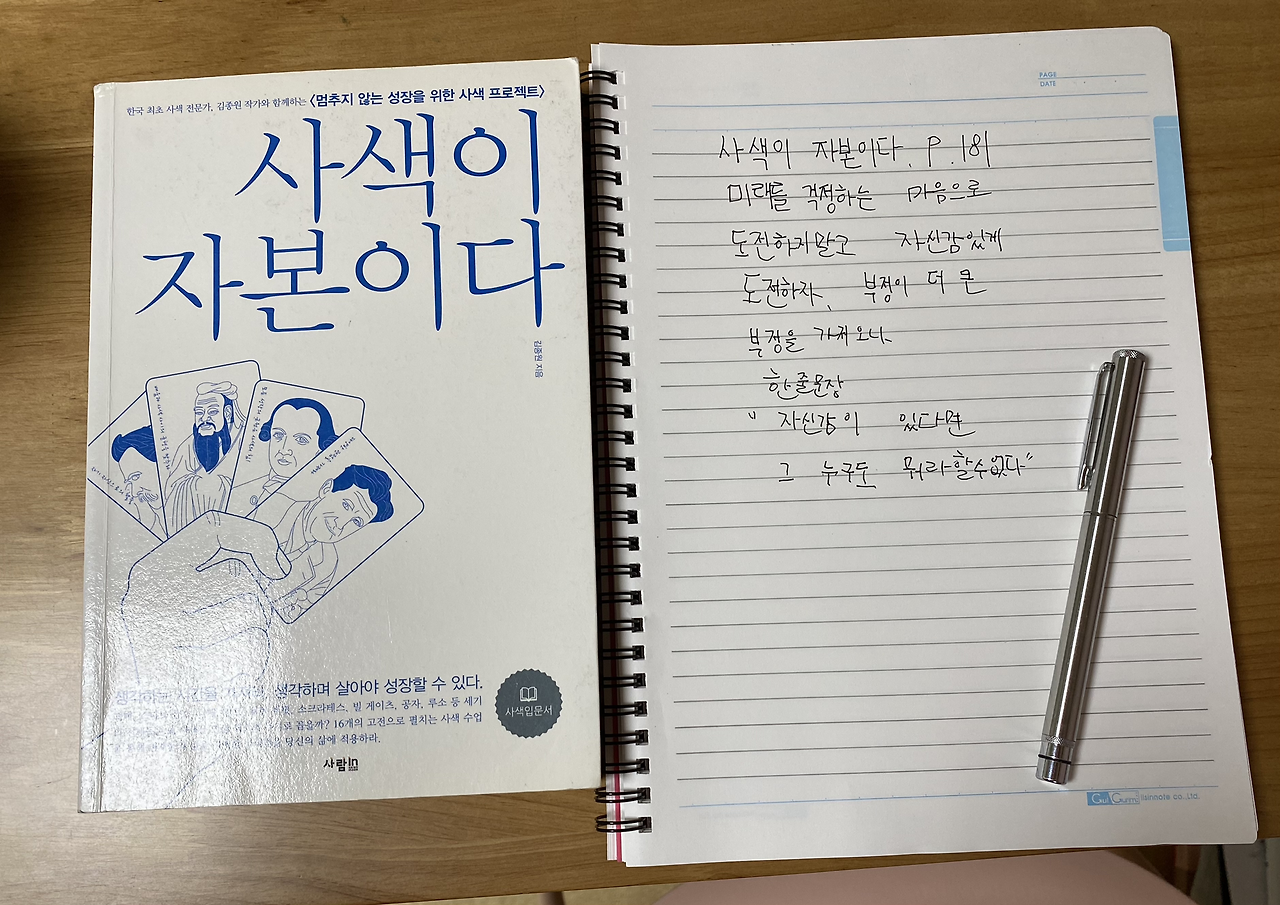 한국 최초 사색 전문가, 김종원 작가와 함께하는 〈멈추지 않는 성장을 위한 사색 프로젝트〉
사색이
자본이다
김종원 지음
생각하며 살아야 성장할 수 있다.
소크라테스, 빌 게이츠, 공자, 루소 등 세기
꼽을까? 16개의 고전으로 펼치는 사색 수업
당신의 삶에 적용하라.
사색입문서
사람in
PAGE
DATE
사색이 자본이다. P.181
미래를 걱정하는 마음으로
도전하지말고 자신감있게
도전하자. 부정이 더 큰
부정을 가져오니.
한줄문장
" 자신감이 있다면
그 누구도 뭐라할수없다"
co.,Ltd.